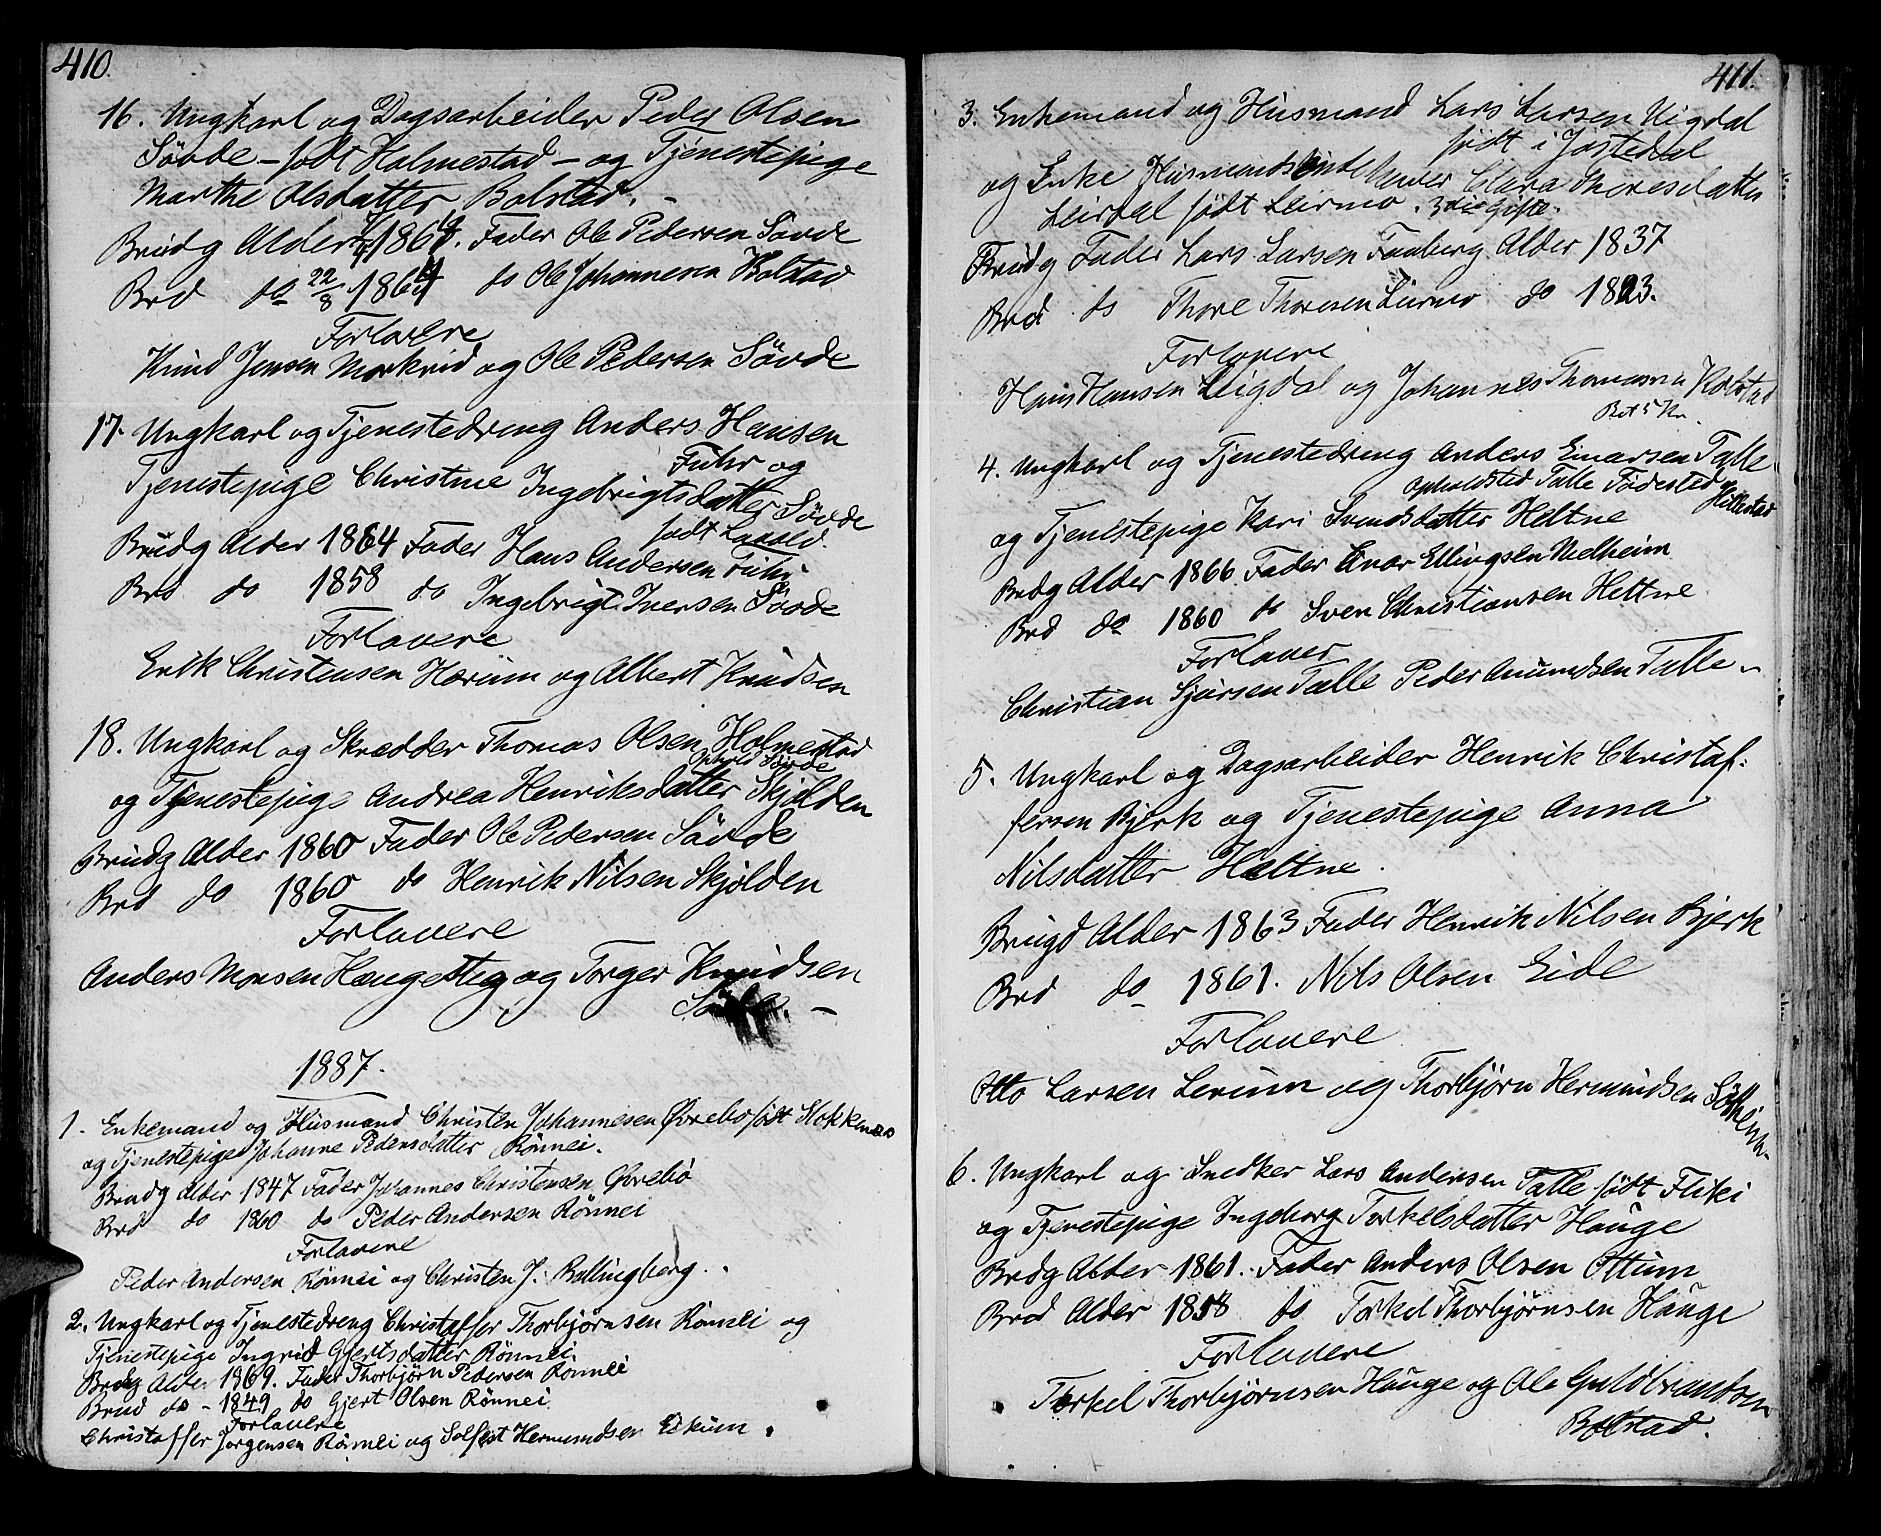 410.
16. Ungkarl og Dagsarbeider Peder Olsen
Søvde – født Holmestad – og Tjenestepige
Marthe Olsdatter Bolstad. –
Brudg Alder 1864. Fader Ole Pedersen Søvde
Brd do 22/8 1864 do Ole Johannesen Bolstad
Forlovere
Knud Jensen Morkrid og Ole Pedersen Søvde
17. Ungkarl og Tjenestedreng Anders Hansen
Fuhr og
Tjenestepige Christine Ingebrigtsdatter Søvde
født
Brudg Alder 1864 Fader Hans Andersen Fuhr
Brd do 1858 do Ingebrigt Iversen Søvde
Forlovere
Erik Christensen Hærum og Albert Knudsen
18. Ungkarl og Skrædder Thomas Olsen Holmestad
Ophold Søvde
og Tjenestepige Andrea Henriksdatter Skjolden
Brudg Alder 1860 Fader Ole Pedersen Søvde
Brd do 1860 do Henrik Nilsen Skjolden
Forlovere
Anders Monsen Haugesteg og Torger Knudsen
Søvde. –
1887.
1. Enkemand og Husmand Christen Johannesen Øvrebø født Stokkenæs
og Tjenestepige Johanne Pedersdatter Rønnei.
Brudg Alder 1847 Fader Johannes Christensen Øvrebø
Brd do 1860 do Peder Andersen Rønnei
Forlovere
Peder Andersen Rønnei og Christen J. Bollingberg.
2. Ungkarl og Tjenestedreng Christoffer Thorbjørnsen Rønnei og
Tjenestepige Ingrid Gjertsdatter Rønnei
Brdg Alder 1869. Fader Thorbjørn Pedersen Rønnei
Brud do – 1849 do Gjert Olsen Rønnei
Forlovere
Christoffer Jørgensen Rønnei og Solfest Hermundsen Eikum.
411.
3. Enkemand og Husmand Lars Larsen Vigdal
født i Jostedal
og Enke Husmandsenke Clara Thoresdatter
Leirdal født Leirmo. 3die Gifte.
Brudg Fader Lars Larsen Faaberg Alder 1837
Brd do Thore Thoresen Leirmo do 1823.
Forlovere
Hans Hansen Leigdal og Johannes Thomassen Kolstad
Bet 5 Kr
4. Ungkarl og Tjenestedreng Anders Einarsen Talle
Opholdsted Talle Fødested
Hillestad
og Tjenestepige Kari Svendsdatter Heltne
Brdg Alder 1866 Fader Einar Ellingsen Melheim
Brd do 1860 do Sven Christiansen Heltne
Forlover
Christian Sjursen Talle Peder Amundsen Talle –
5. Ungkarl og Dagsarbeider Henrik Christof-
fersen Bjerk og Tjenestepige Anna
Nilsdatter Heltne.
Brugd Alder 1863 Fader Henrik Nilsen Bjerk
Brd do 1861. Nils Olsen Eide
Forlovere
Otto Larsen Lerum og Thorbjørn Hermundsen
6. Ungkarl og Snedker Lars Andersen Talle født Fliki
og Tjenestepige Ingeborg Torkelsdatter Hauge
Brdg Alder 1861. Fader Anders Olsen Ottum
Brd Alder 1858 do Torkel Thorbjørnsen Hauge
Forlovere
Torkel Thorbjørnsen Hauge og Ole Guldbrandsen
Bolstad.